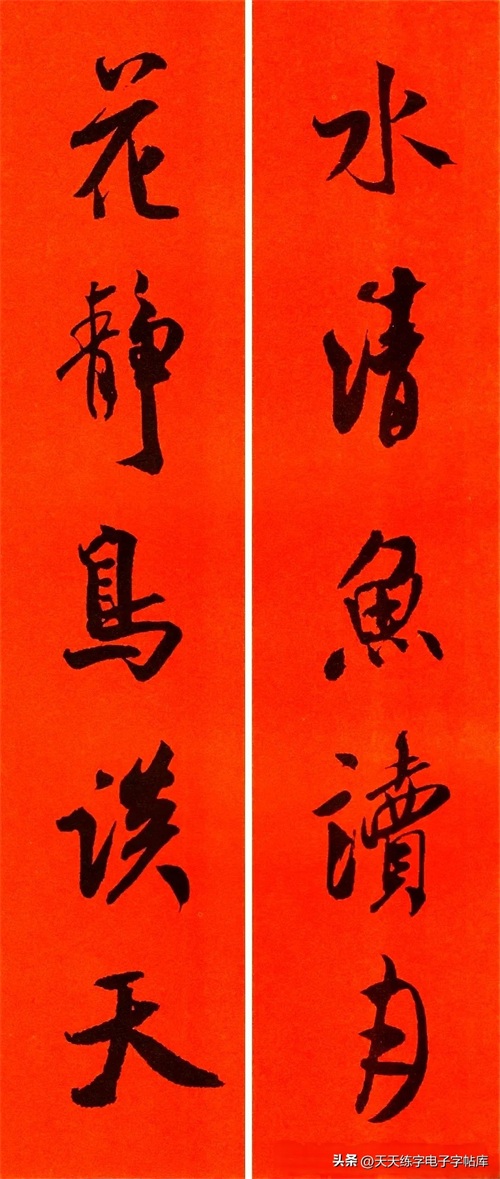 水清魚讀月
花靜鳥談天
头条 @天天练字电子字帖库